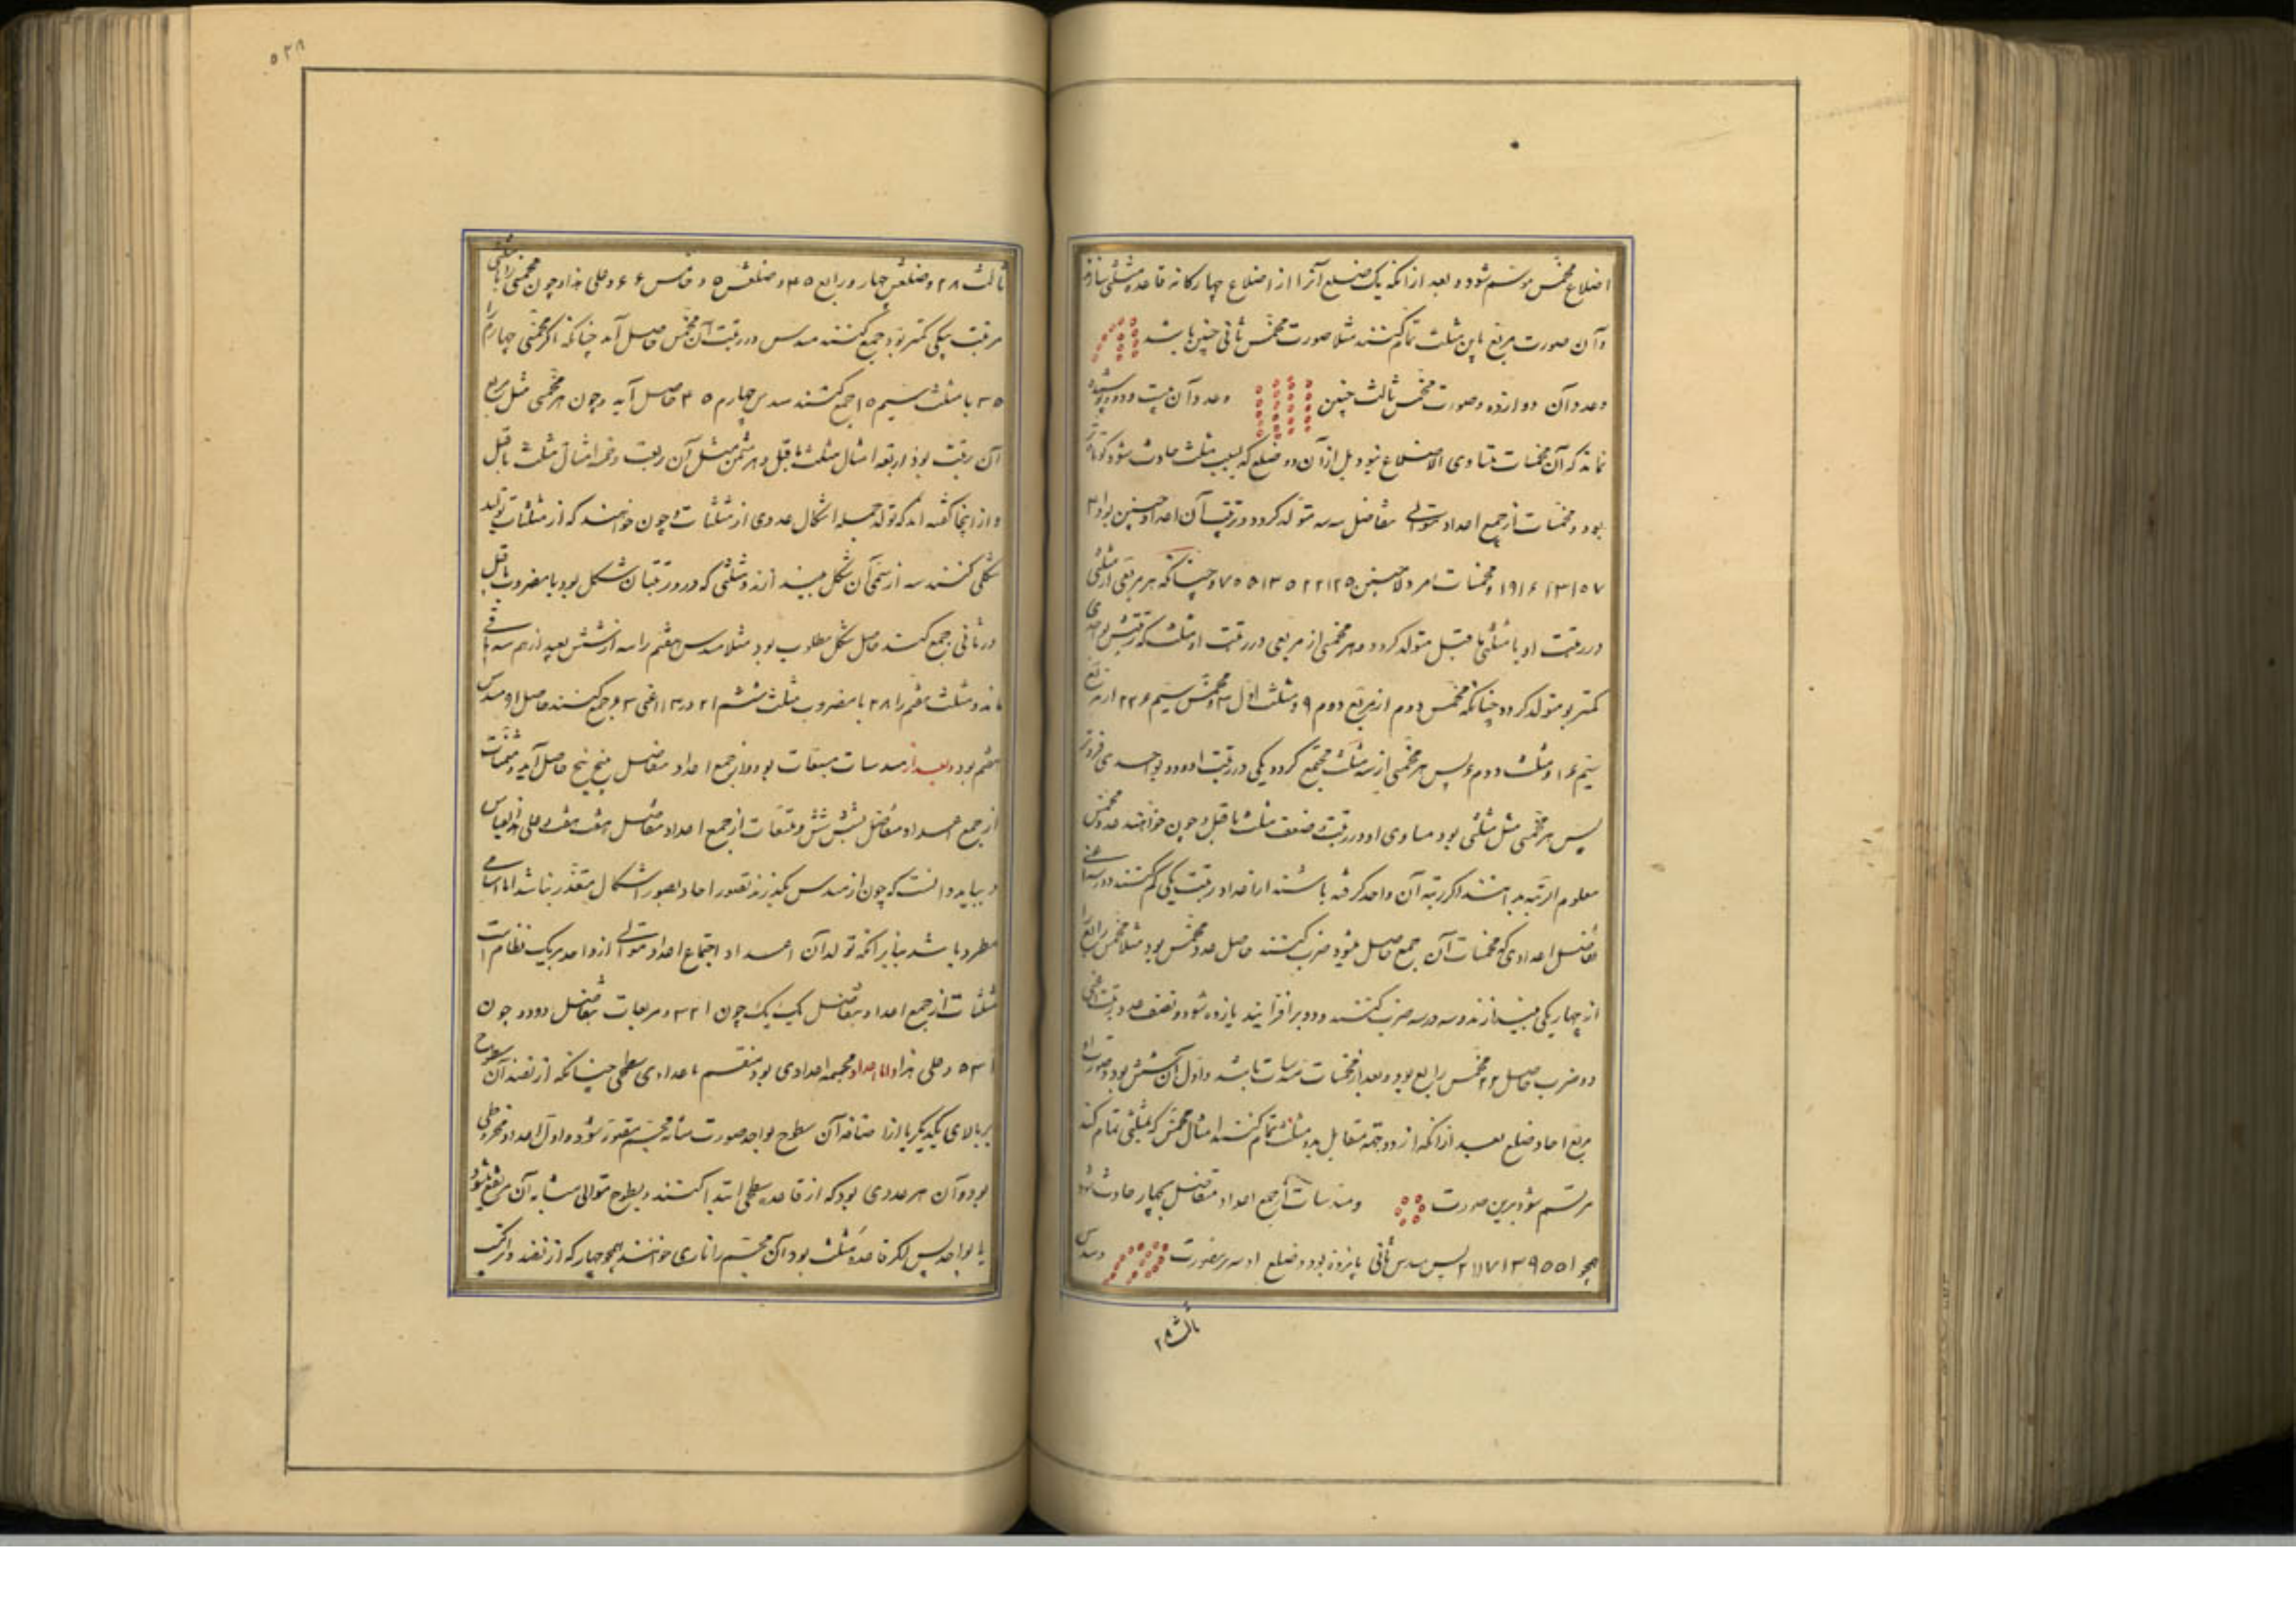 اضلاع مخمس مرتسم شود و بعد از آنکه یک ضلع آنرا از اضلاع چهارگانه قاعده مثلثی سازند
و آن صورت مربع باین مثلث تمام کنند مثلا صورت مخمس ثانی چنین باشد
و عدد آن دوازده و صورت مخمس ثالث چنین و عدد آن بیست و دو و پوشیده
نماند که آن مخمسات متساوی الاضلاع نبود بل از آن دو ضلع که بسبب مثلث حادث شود کوتاه‌تر
بود و مخمسات از جمیع اعداد متوالی متفاضل سه سه متولد کردد و ترتیب آن اعداد چنین بود ۱ ۴
۷ ۱۰ ۱۳ ۱۶ ۱۹ و مخمسات بر ولا چنین ۱ ۵ ۱۲ ۲۲ ۳۵ ۵۱ ۷۰ و چنانکه هر مربعی از مثلثی
در رتبت او با مثلثی ماقبل متولد کردد و هر مخمسی از مربعی در رتبت او و مثلث که رتبتش بواحدی
کمتر بود متولد کردد چنانکه مخمس دوم از مربع دوم ۹ و مثلث اول ۳ و مخمس سیم ۲۲ از مربع
سیم ۱۶ و مثلث دوم ۶ پس هر مخمسی از سه مثلث مجتمع کردد یکی در رتبت او و دو بواحدی فروتر
پس هر مخمسی مثل مثلثی بود مساوی او در رتبت و ضعف مثلث ماقبل و چون خواهند عدد مخمس
معلوم الرتبه بدانند اگر رتبه آن واحد کرفته باشند از اعداد رتبت یکی کم کنند و در سه اعنی
تفاضل اعدادی که مخمسات آن جمع حاصل میشود ضرب کنند حاصل عدد مخمس بود مثلا مخمس رابع را
از چهار یکی بیندازند و سه در سه ضرب کنند و دو بر افزایند یازده شود و نصف عدد رتبت اعنی
دو ضرب حاصل ۲۲ مخمس رابع بود و بعد از مخمسات مسدسات باشد و اول آن شش بود و صورت او
مربع احاد ضلع بعد از آنکه از دو جهة متقابل بدو مثلث تمام کنند امثال مخمس که بمثلثی تمام کند
مرتسم شود برین صورت و مسدسات از جمع اعداد متفاضل بچهار حادث شود
همچو ۱ ۵ ۹ ۱۳ ۱۷ ۲۱ پس مسدس ثانی پانزده بود و ضلع او سه برین صورت و مسدس
ثالث ۲۸
۵۲۸
ثالث ۲۸ و ضلعش چهار و رابع ۴۵ و ضلعش ۵ و خامس ۶۶ و علی هذا و چون مخمسی را با مثلثی
مرتبت بیکی کمتر بود جمع کنند مسدس در رتبت آن مخمس حاصل آید چنانکه اگر مخمس چهارم را
۳۵ با مثلث سیم ۱۰ جمع کنند مسدس چهارم ۴۵ حاصل آید و چون هر مخمسی مثل مربع
آن رتبت بود و اربعه امثال مثلث ماقبل و هر مثمن مثل آن رتبت و خمسه امثال مثلث ماقبل
و از اینجا گفته اند که تولد جمله اشکال عددی از مثلثات و چون خواهند که از مثلثات تولید
شکلی کنند سه از سمی آن شکل بیندازند و مثلثی که در رتبت آن شکل بود با مضروب ماقبل
در ثانی جمع کنند حاصل شکل مطلوب بود مثلا مسدس هفتم را سه از شش بعد از هم سه باقی
ماند و مثلث هفتم را ۲۸ با مضروب مثلث ششم ۲۱ در ۳ اعنی ۶۳ جمع کنند حاصل او مسدس
هفتم بود و بعد از مسدسات مسبعات بود و از جمع اعداد متفاضل پنج پنج حاصل آید و مثمنات
از جمع اعداد متفاضل شش شش و متسعات از جمع اعداد متفاضل هفت هفت و علی هذا القیاس
و بباید دانست که چون از مسدس بگذرند تصور احاد بصور اشکال متعذر باشد اما اسامی
مطرد باشد بنابر آنکه تولد آن اعداد اجتماع اعداد متوالی از واحد بر یک نظام است
مثلثات از جمع اعداد متفاضل یک یک چون ۱ ۲ ۳ و مربعات متفاضل دو دو چون
۱ ۳ ۵ و علی هذا و اما اعداد مجسمه اعدادی بود منقسم باعدادی سطحی چنانکه از نضد آن سطوح
بر بالای یکدیگر یا از اضافه آن سطوح بواحد صورت شأنه مجسم متصور شود و اول اعداد مخروطی
بود و آن هر عددی بود که از قاعده سطحی ابتدا کنند و بسطوح متوالی مشابه آن مرتفع شود
تا بواحد پس اگر قاعده مثلث بود آن مجسم را ناری خوانند همچو چهار که از نضد و ترکیب